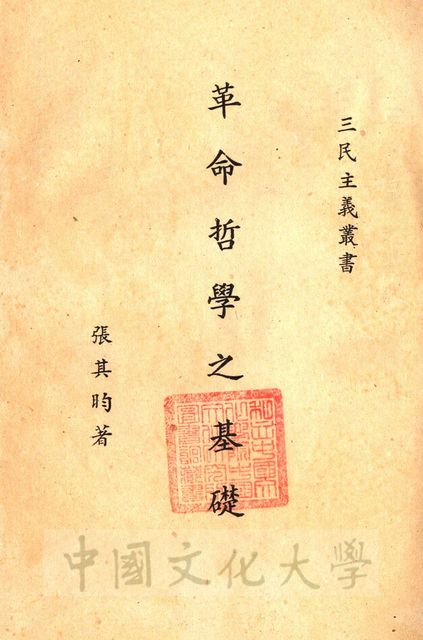 三民主義叢書
革命哲學之基礎
張其昀著
中國文化大學